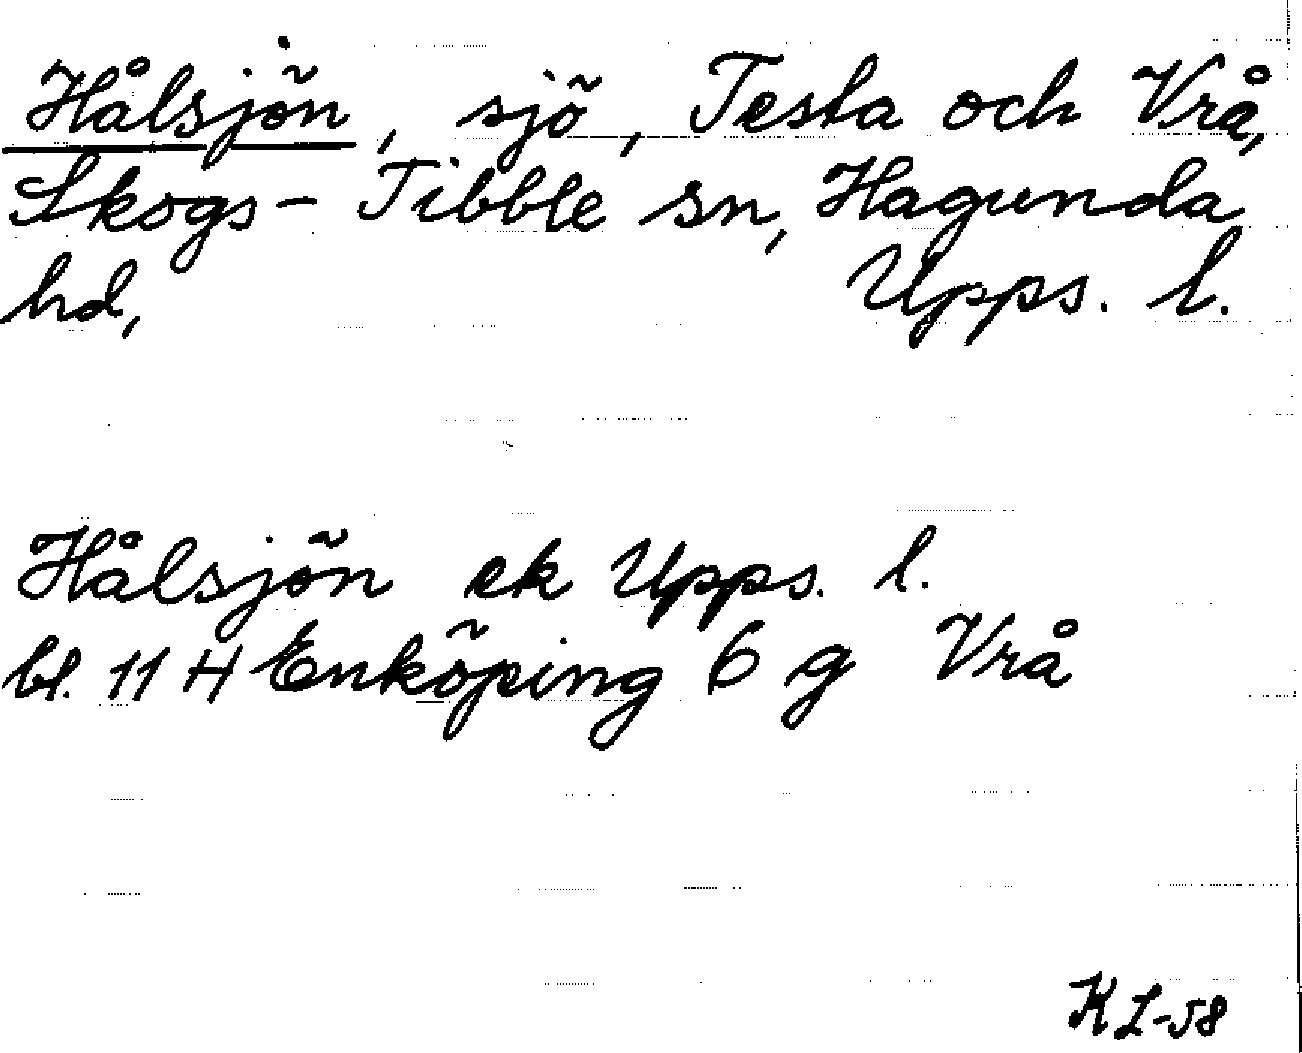 Hålsjön, sjö, Testa och Vrå,
Skogs-Tibble sn, Hagunda
hd, Upps. l.
Hålsjön ek Upps. l.
bl. 11 H Enköping 6 g Vrå
KL-58